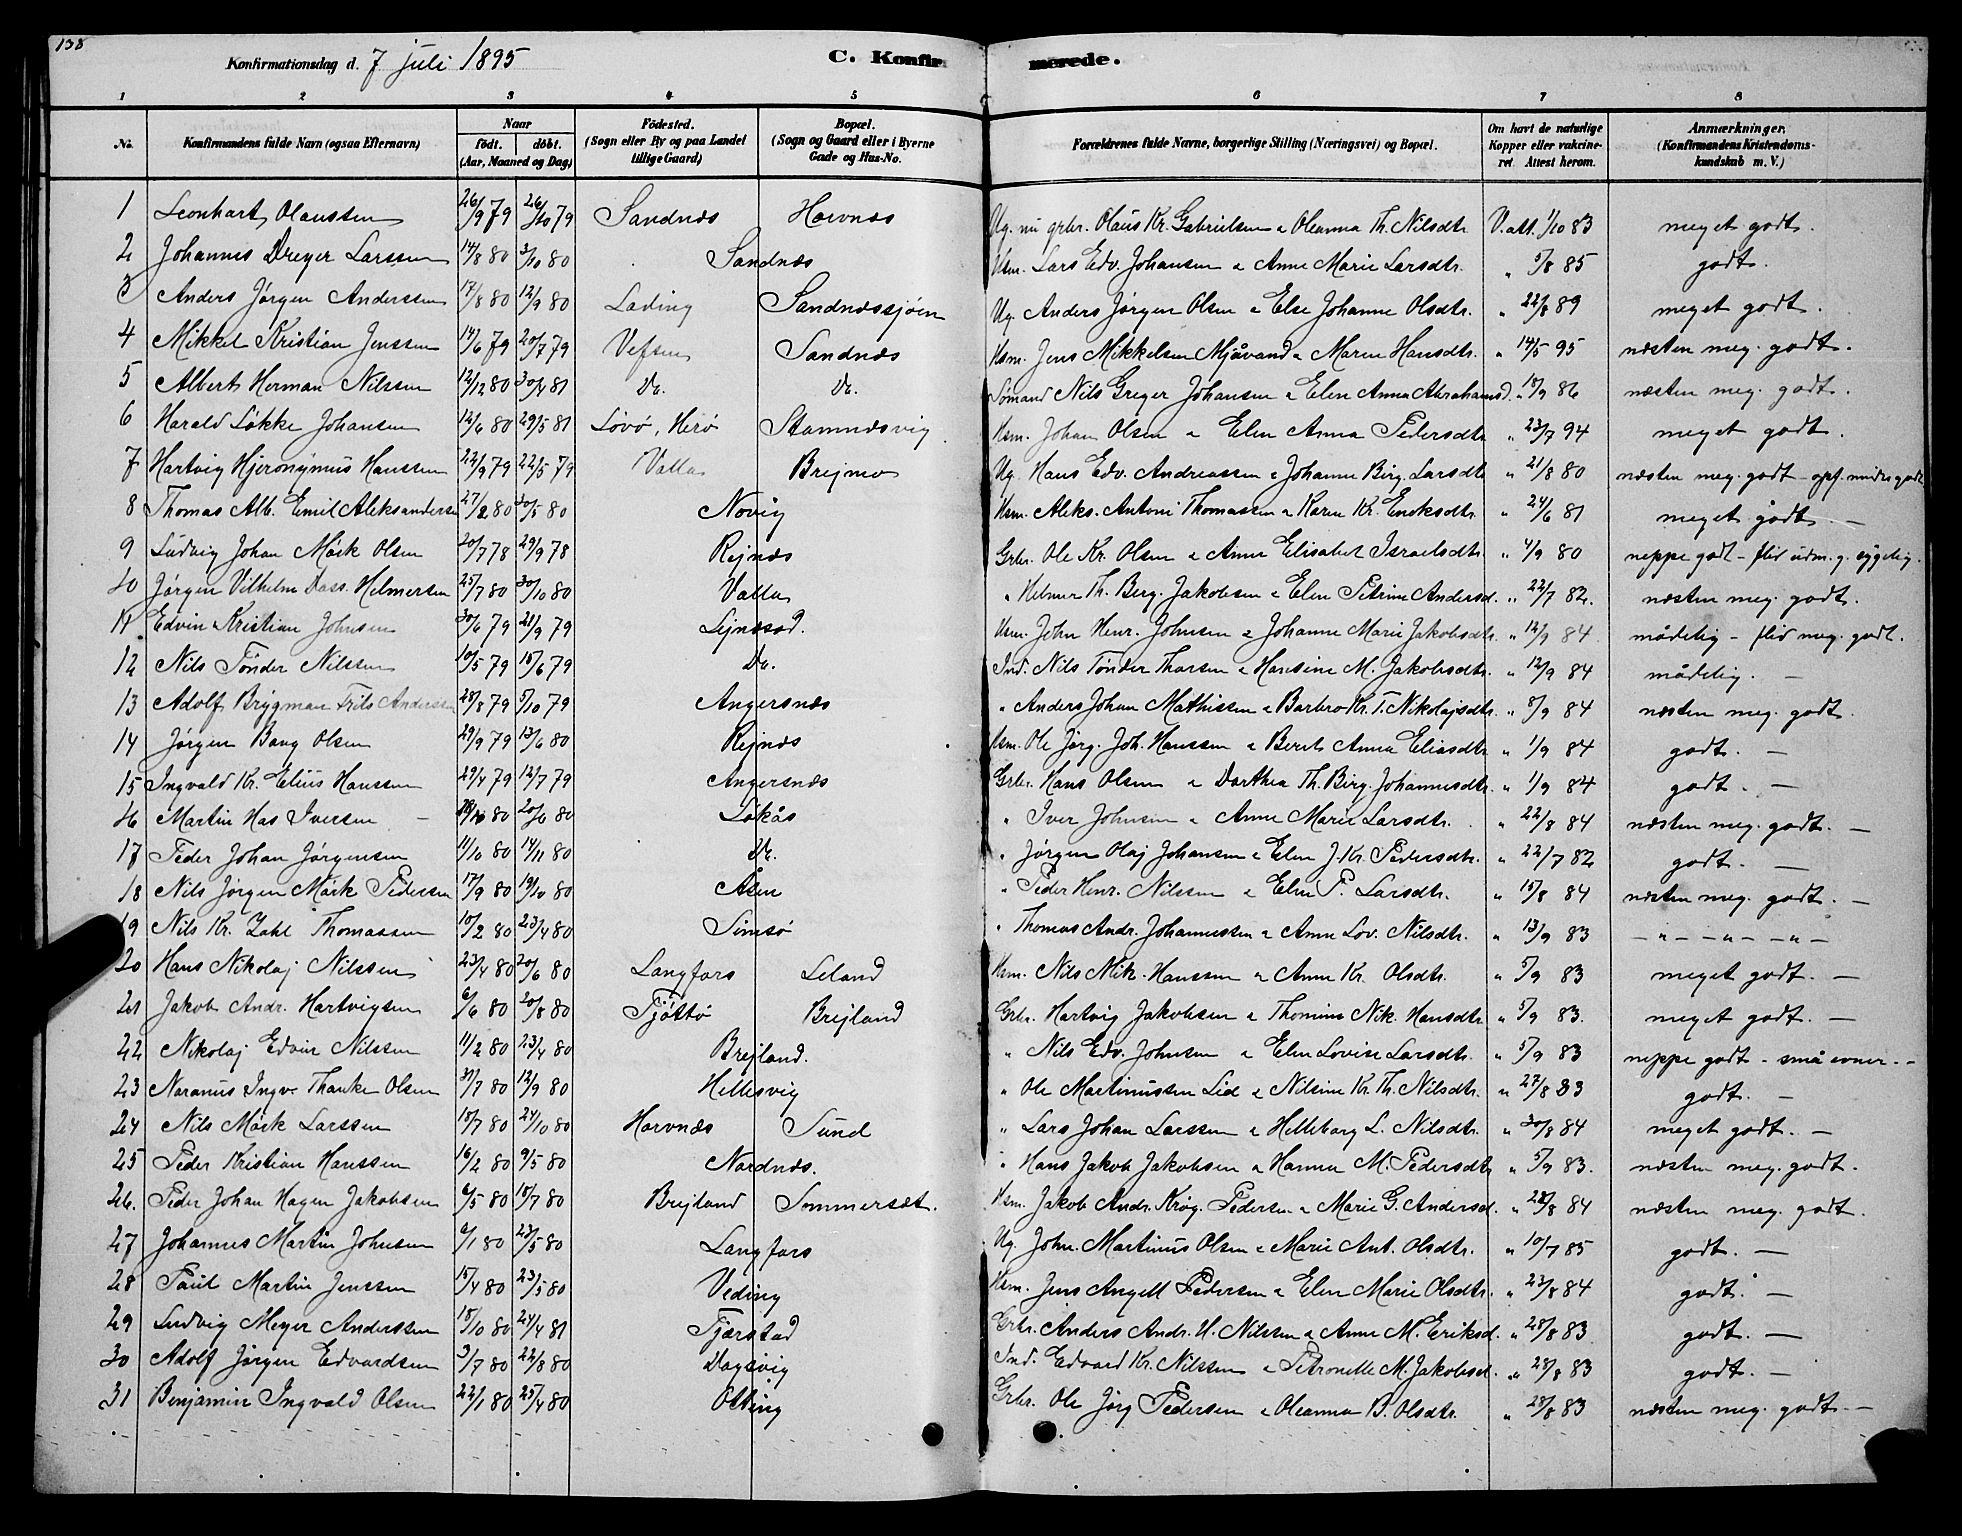 138
Konfirmationsdag d. 7 juli 1895 C. Konfirmerede.
1 2 3 4 5 6 7 8
No. Konfirmandens fulde Navn (ogsaa Efternavn) Naar født. døbt. (Aar, Maaned og Dag) Fødested. (Sogn eller By og paa Landet tillige Gaard) Bopæl. (Sogn og Gaard eller i Byerne Gade og Hus-No. Forældrenes fulde Navne, borgerlige Stilling (Næringsvei) og Bopæl. Om havt de naturlige Kopper eller vakcineret. Attest herom. Anmærkninger. (Konfirmandens Kristendomskundskab m. V.)
1 Leonhart Olaussen 26/9 79 26/10 79 Sandnæs Horvnæs Ug. nu grbr. Olaus Kr. Gabrielsen & Oleanna Th. Nilsdtr. V. att. 1/10 83 meget godt.
2 Johannes Dreyer Larssen 14/8 80 3/10 80 Sandnæs Hsm. Lars Edv. Johansen & Anne Marie Larsdtr. " 5/8 85 godt.
3 Anders Jørgen Anderssen 17/8 80 12/9 80 Lading Sandnæssjøen Ug. Anders Jørgen Olsen & Else Johanne Olsdtr. " 22/8 89 meget godt.
4 Mikkel Kristian Jenssen 14/6 79 20/7 79 Vefsen Sandnæs Hsm. Jens Mikkelsen Mjåvand & Maren Hansdtr. " 14/5 95 næsten meg. godt.
5 Albert Herman Nilssen 12/12 80 30/4 81 Do. Do. Sømand Nils Greger Johansen & Elen Anna Abrahamsd. " 18/9 86 næsten meg. godt.
6 Harald Løkke Johansen 12/6 80 29/5 81 Løvø, Herø Stamnæsvig Hsm. Johan Olsen & Elen Anna Pedersdtr " 23/7 94 meget godt.
7 Hartvig Hjeronymus Hanssen 22/9 79 22/5 79 Valla Brejmo Ug. Hans Edv. Andreassen & Johanne Berg. Larsdtr " 21/8 80 næsten meg. godt - opf. mindre godt
8 Thomas Alb. Emil Aleksandersen 27/2 80 30/5 80 Novig Hsm. Aleks. Antoni Thomassen & Karen Kr. Eriksdtr. " 24/6 81 meget godt. -
9 Ludvig Johan Mørk Olsen 20/7 78 29/9 78 Rejnæs Grbr. Ole Kr. Olsen & Anne Elisabet Israelsdtr. " 4/9 80 neppe godt - flid udm. g. sygelig.
10 Jørgen Vilhelm Dass Helmersen 25/7 80 30/10 80 Valla " Helmer Th. Berg. Jakobsen & Elen Petrine Andersd. " 22/7 82. næsten meg. godt.
11 Edvin Kristian Johnsen 30/6 79 28/9 79 Lejnæsod. Hsm. John Henr. Johnsen & Johanne Marie Jakobsdtr. " 12/9 84. mådelig - flid meg. godt.
12 Nils Tønder Nilssen 10/5 79 15/6 79 Do. Ind. Nils Tønder Tharsen & Hansine M. Jakobsdtr. " 12/9 84 mådelig. -
13 Adolf Brygman Friis Anderssen 28/8 79 5/10 79 Angersnæs " Anders Johan Mathissen & Barbro Kr. T. Nikolajsdtr. " 8/9 84 næsten meg. godt.
14 Jørgen Bang Olsen 29/9 79 13/6 80 Rejnæs Hsm. Ole Jørg. Joh. Hanssen & Berit Anna Eliasdtr " 1/9 84 godt. -
15 Ingvald Kr. Elius Hanssen 29/4 79 12/7 79 Angersnæs Grbr. Hans Olsen & Dorthea Th. Berg. Johannesdtr. " 1/9 84 godt. -
16 Martin Has Iversen - 80 20/6 80 Løkås " Iver Johnsen & Anne Marie Larsdtr. " 22/8 84 næsten meg. godt. -
17 Peder Johan Jørgensen 11/10 80 14/11 80 Do. " Jørgen Olaj Johansen & Elen J. Kr. Pedersdtr. " 22/7 82 godt. -
18 Nils Jørgen Mørk Pedersen 17/9 80 19/10 80 Åsen " Peder Henr. Nilssen & Elen P. Larsdtr. " 15/8 84 næsten meg. godt. -
19 Nils Kr. Zahl Thomassen 10/2 80 23/4 80 Simsø " Thomas Andr. Johannessen & Anne Lov. Nilsdtr. " 13/9 83 - " - - " - - " -
20 Hans Nikolaj Nilssen 23/4 80 20/6 80 Langfors Leland Hsm. Nils Mik. Hanssen & Anne Kr. Olsdtr. " 5/9 83 meget godt. -
21 Jakob Andr. Hartvigsen 6/6 80 20/8 80 Tjøttø Brejland Grbr. Hartvig Jakobsen & Thomine Nik. Hansdtr " 5/9 83. meget godt. -
22 Nikolaj Edvin Nilssen 11/2 80 23/4 80 Brejland. " Nils Edv. Johnsen & Elen Lovise Larsdtr. " 5/9 83 neppe godt - små evner. -
23 Naranus Ingv. Thanke Olsen 31/7 80 12/9 80 Hellesvig " Ole Martinussen Lid & Nilsine Kr. Th. Nilsdtr. " 27/8 83 godt. -
24 Nils Mørk Larssen 18/7 80 24/10 80 Horvnæs Sund " Lars Johan Larssen & Helleborg L. Nilsdtr. " 30/8 84 meget godt. -
25 Peder Kristian Hanssen 16/2 80 9/5 80 Nordnæs. " Hans Jakob Jakobsen & Hanna M. Pedersdtr " 5/9 83. næsten meg. godt.
26. Peder Johan Hagen Jakobsen 6/5 80 18/7 80 Brejland Sommersæt. Hsm. Jakob Andr. Krog. Pedersen & Marie G. Andersd. " 28/8 84 næsten meg. godt.
27 Johannes Martin Johnsen 6/1 80 23/5 80 Langfors Ug. John. Martinus Olsen & Marie Ant. Olsdtr. " 10/7 85 godt. -
28 Paul Martin Jenssen 15/4 80 23/5 80 Veding Hsm. Jens Angell Pedersen & Elen Marie Olsdtr. " 23/8 84 godt. -
29 Ludvig Meyer Anderssen 18/10 80 24/4 81 Tjærstad Grbr. Anders Andr. H. Nilssen & Anne M. Eriksd. " 28/8 83 godt. -
30 Adolf Jørgen Edvardsen 3/7 80 22/8 80 Dagsvig Ind. Edvard Kr. Nilssen & Petronelle M. Jakobsd. " 28/8 83 godt. -
31 Benjamin Ingvald Olsen 22/1 80 25/4 80 Olting Grbr. Ole Jørg Pedersen & Oleanna B. Olsdtr. " 28/8 83 næsten meg. godt. -